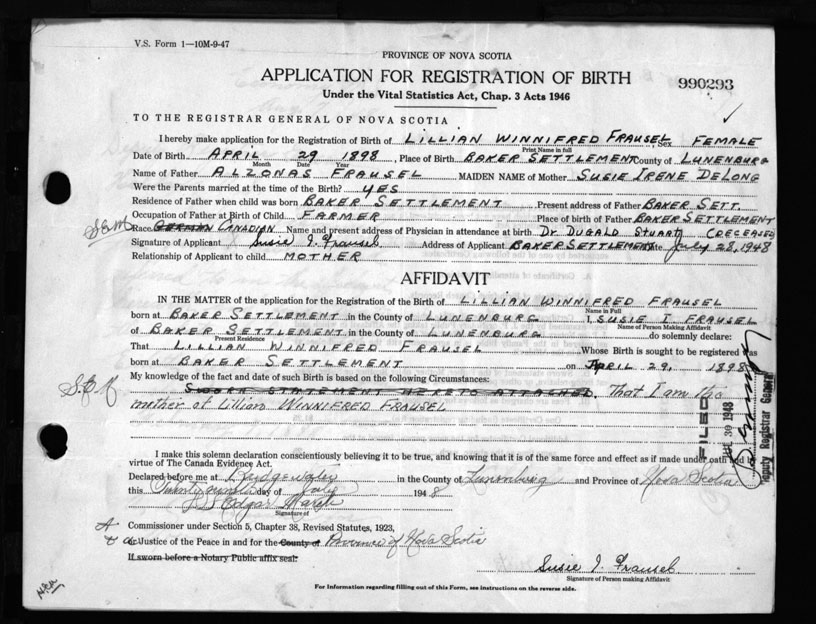 V.S. Form 1—10M-9-47
PROVINCE OF NOVA SCOTIA
APPLICATION FOR REGISTRATION OF BIRTH
990293
Under the Vital Statistics Act, Chap. 3 Acts 1946
TO THE REGISTRAR GENERAL OF NOVA SCOTIA
I hereby make application for the Registration of Birth of LILLIAN WINNIFRED FRAUSEL, Sex FEMALE
Print Name in full
Date of Birth APRIL 29 1898, Place of Birth BAKER SETTLEMENT County of LUNENBURG
Month Date Year
Name of Father ALZONAS FRAUSEL MAIDEN NAME of Mother SUSIE IRENE DELONG
Were the Parents married at the time of the Birth? YES
Residence of Father when child was born BAKER SETTLEMENT Present address of Father BAKER SETT.
Occupation of Father at Birth of Child FARMER Place of birth of Father BAKER SETTLEMENT
Race GERMAN CANADIAN Name and present address of Physician in attendance at birth DR. DUGALD STUART (DECEASED)
Signature of Applicant Susie I. Frausel Address of Applicant BAKER SETTLEMENT Date July 28, 1948
Relationship of Applicant to child MOTHER
AFFIDAVIT
IN THE MATTER of the application for the Registration of the Birth of LILLIAN WINNIFRED FRAUSEL
Name in Full
born at BAKER SETTLEMENT in the County of LUNENBURG I, SUSIE I. FRAUSEL
Name of Person Making Affidavit
of BAKER SETTLEMENT in the County of LUNENBURG do solemnly declare:
Present Residence
That LILLIAN WINNIFRED FRAUSEL Whose Birth is sought to be registered was
born at BAKER SETTLEMENT on APRIL 29, 1898
My knowledge of the fact and date of such Birth is based on the following Circumstances:
SWORN STATEMENT HERETO ATTACHED, That I am the
mother of Lillian WINNIFRED FRAUSEL
FILED
JUL 30 1948
Deputy Registrar General
I make this solemn declaration conscientiously believing it to be true, and knowing that it is of the same force and effect as if made under oath and by
virtue of The Canada Evidence Act.
Declared before me at Bridgewater in the County of Lunenburg and Province of Nova Scotia
this day of July 1948
Edgar
Signature of
A Commissioner under Section 5, Chapter 38, Revised Statutes, 1923,
or Justice of the Peace in and for the County of Province of Nova Scotia
If sworn before a Notary Public affix seal.
Susie I. Frausel
Signature of Person making Affidavit
For Information regarding filling out of this Form, see instructions on the reverse side.